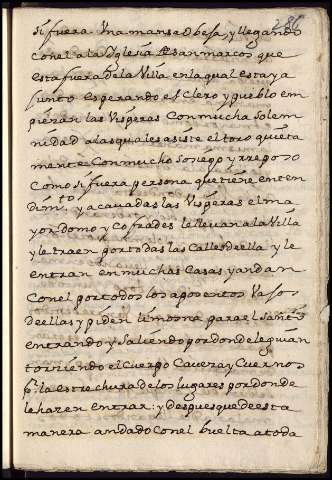 286
si fuera Una mansa Obeja, y llegando
con el a la Yglesia de san marcos que
esta fuera de la Villa en la qual esta ya
junto esperando el Clero y pueblo em
piezan las Visperas Con mucha solem
nidad a las quales asiste el toro quieta
mente Con mucho sosiego y rreposo
Como si fuera persona que tiene enten
dimto y acavadas las Visperas el ma
yordomo y Cofrades le llevan a la Villa
y le traen por todas las Calles de ella y le
entran en muchas Casas y andan
Con el por todos los aposentos Vajos
de ellas y piden limosna para el Santo
entrando y saliendo por donde le guian
torciendo el Cuerpo Caveza y Cuernos
pr la estrechura de los lugares por donde
le hazen entrar: y despues que de esta
manera an dado Con el buelta a toda